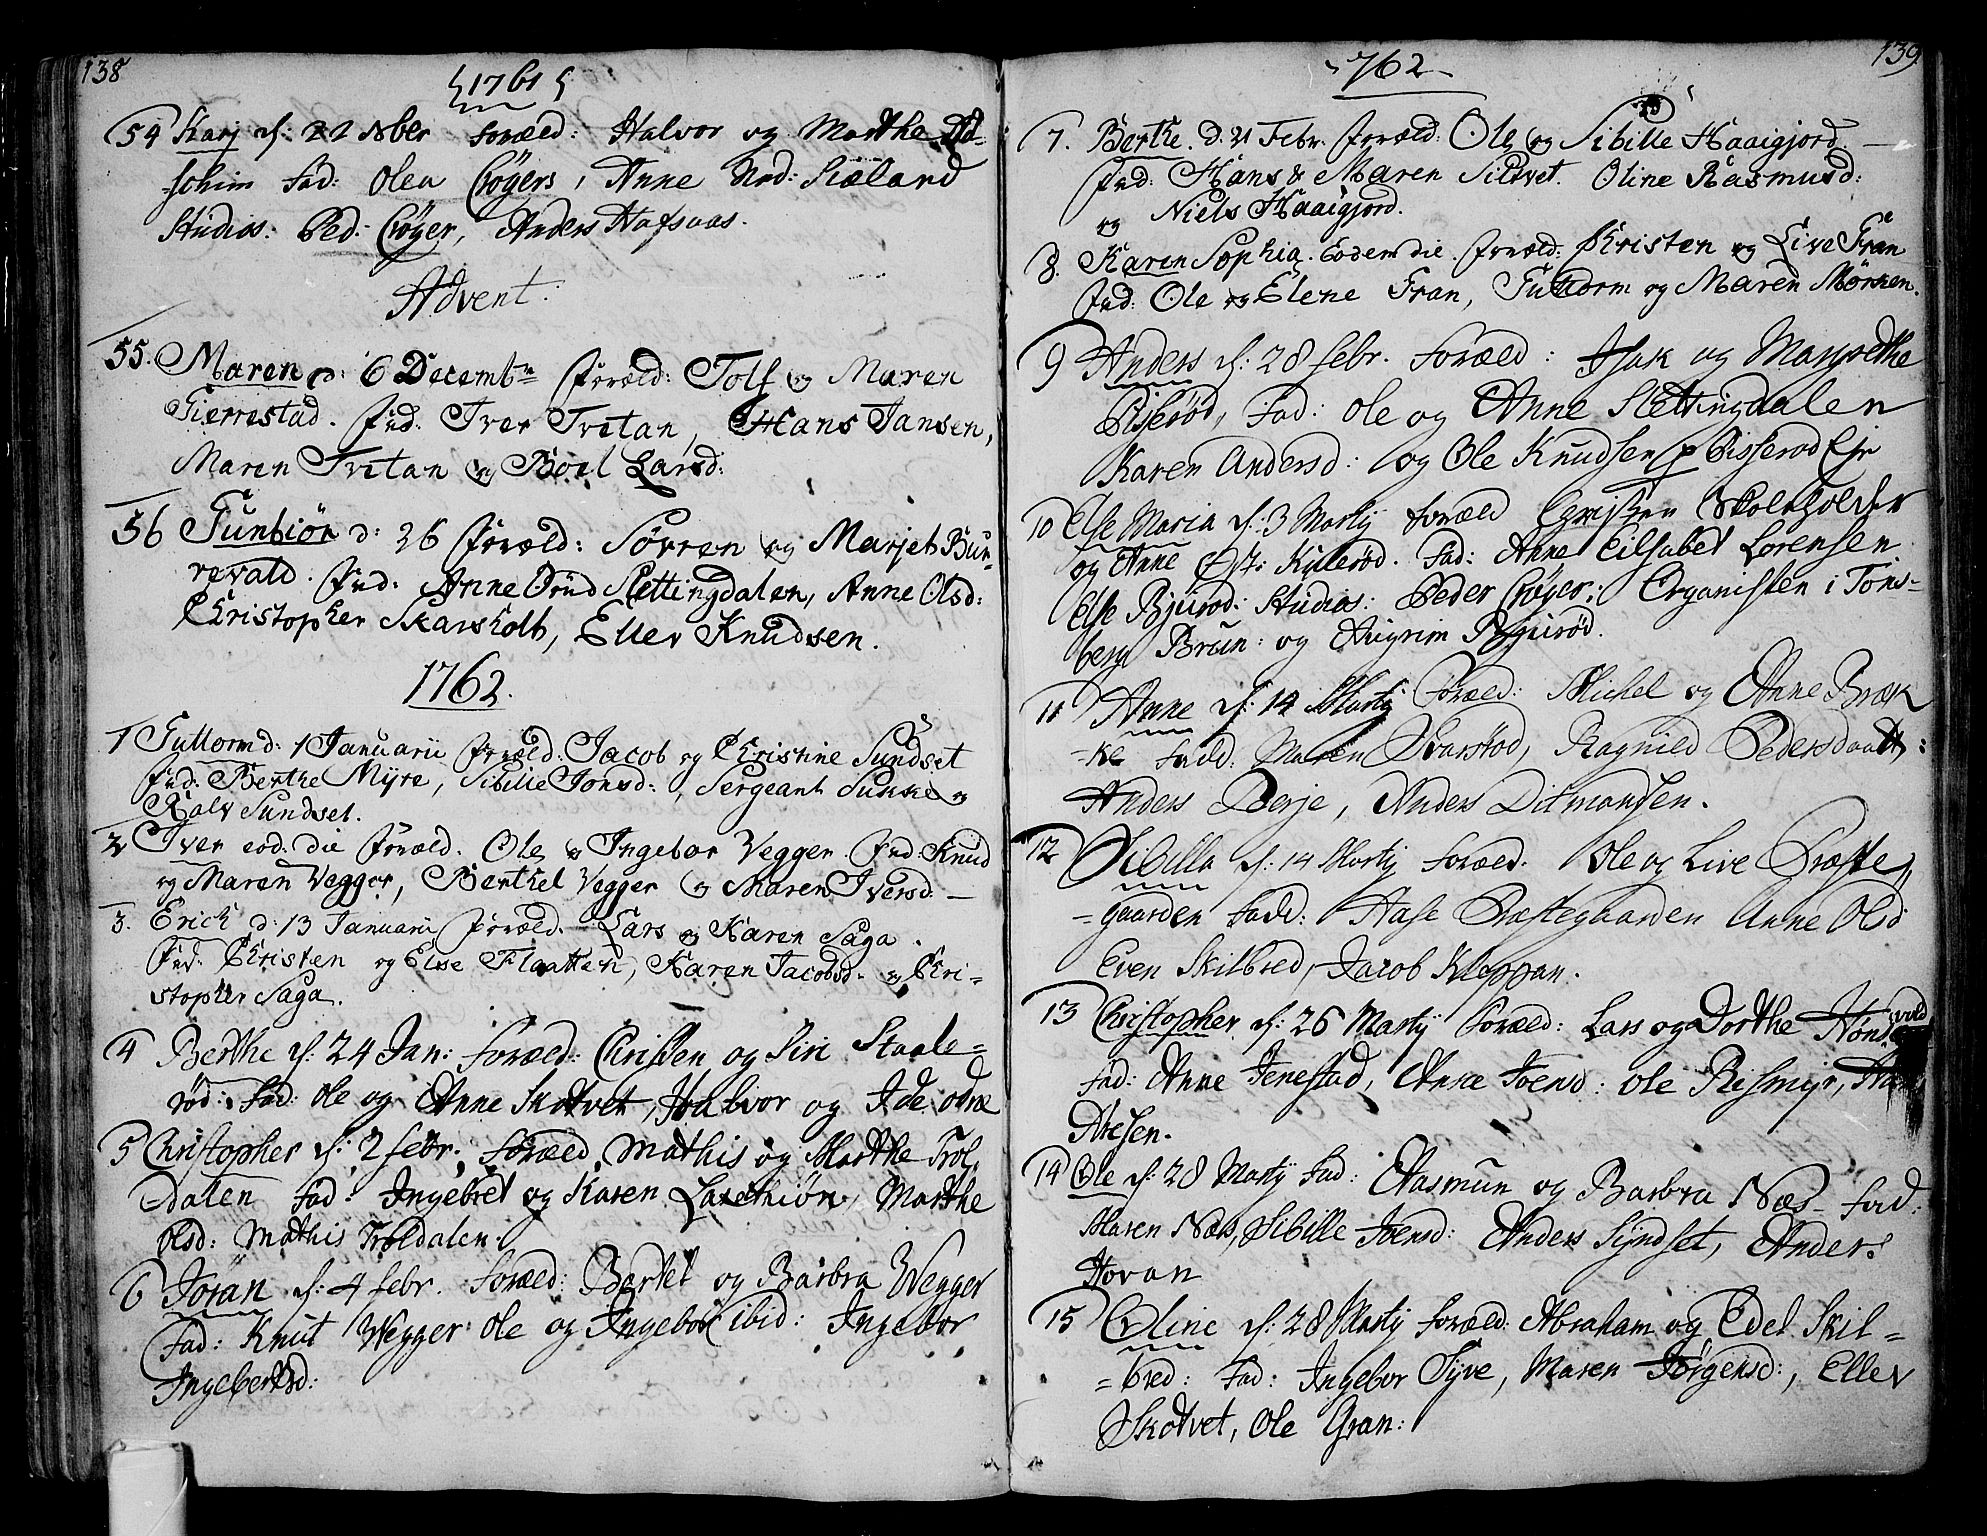 138
1761
54 Karj d: 22 Nber foræld: Halvor og Marthe Ad-
schim fad: Olea Crøgers, Anne Nod: Siæland
Studios: Ped: Crøger, Anders Hafsaas.
Advent:
55. Maren d: 6 Decembr foræld: Tolf og Maren
Gierrestad. fad. Iver Tvetan, Hans Jansen,
Maren Tvetan og Boel Larsd:
56 Gunbiør d: 26 foræld: Sørren og Marjet Bur-
revald. fad. Anne Ørud Slettingdalen, Anne Olsd:
Christopher Skarsholt, Ellev Knudsen.
1762.
1 Guttorm d: 1 Januarii foræld. Jacob og Christine Sundset
fad. Berthe Myre, Sibille Jonsd:, Sergeant Sukke og
Rolv Sundset.
2 Iver eod. die foræld. Ole og Ingebor Vegger. fad: Knud
og Maren Vegger, Berthel Vegger og Maren Iversd. —
3. Erich d: 13 Januarii foræld. Lars og Karen Saga.
fad. Christen og Else Flaatten, Karen Jacobsd. og Chri-
stopher Saga.
4 Berthe d: 24 Jan: foræld: Christen og Siri Staale-
rød: fad: Ole og Anne Skotvet, Halvor og Ide odne
5 Christopher d: 2 febr. foræld. Mathis og Marthe Trol-
dalen fad: Ingebret og Karen Lavethiøn, Marthe
Olsd: Mathis Troldalen.
6 Joran d: 4 febr. foræld: Bertel og Barbra Wegger
fad: Knut Wegger Ole og Ingebor ibid: Ingebor
Ingebertsd:
139
1762
7. Berthe. d. 21 Febr. foræld: Ole og Sibille Haaigjord. —
fad: Hans & Maren Siltvet. Oline Rasmusd:
og Niels Haaigjord.
8. Karen Sophia. Eodem die. foræld: Christen og Live Fran
fad: Ole og Elene Fran, Guttorm og Maren Mørken.
9 Anders d: 28 febr. foræld: Isak og Margrethe
Piserød, fad: Ole og Anne Slettingdalen
Karen Andersd: og Ole Knudsen p Pisserod Eje
10 Else Maria d: 3 Martij foræld Christen Skoleholder
og Anne Kyllerød. fad: Anne Eilsabet Lorensen
Else Bjurød: Studios: Peder Crøger: Organisten i Tøns-
berg Brun: og Augrim Bjurød.
11 Anne d: 14 Martij foræld: Michel og Anne Bræk-
ke fadd. Maren Skarstod, Ragnild Pedersdaatt:
Anders Berje, Anders Ditmansen.
12 Sibilla d: 14 Martij foræld. Ole og Live Præste-
gaarden fadd: Aase Præstegaarden Anne Olsd
Even Skilbred, Jacob Kleppan.
13 Christopher d: 26 Martij foræld: Lars og Dorthe Hønsvald
fad: Anne Jenestad, Anne Joensd: Ole Rismyr,
Aresen.
14 Ole d: 28 Martij fad: Rasmun og Barbra Næs fad:
Maren Næs, Sibille Joensd: Anders Syndset, Anders
Hovan
15 Oline d: 28 Martij foræld: Abraham og Edel Skil-
bred: fad: Ingebor Tyve, Maren Jørgensd:, Ellev
Skotvet, Ole Gran: